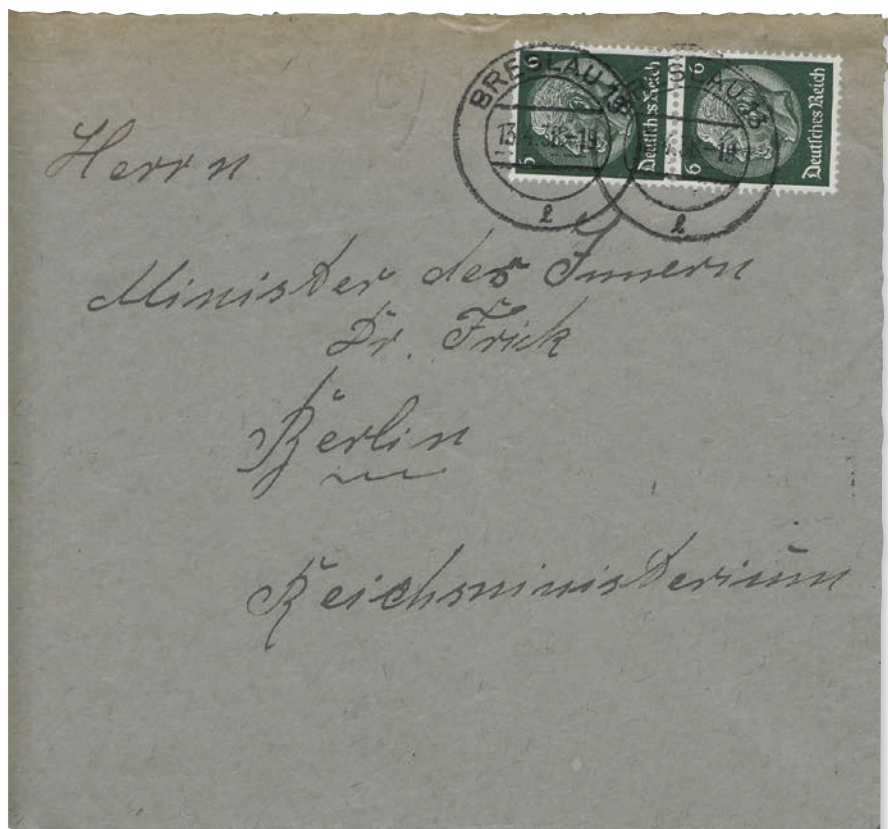 BRESLAU 13
BRESLAU 13
6 6 Deutsches Reich
6 6 Deutsches Reich
l
l
Herrn
Minister des Innern
Dr. Frick
Berlin
Reichsministerium